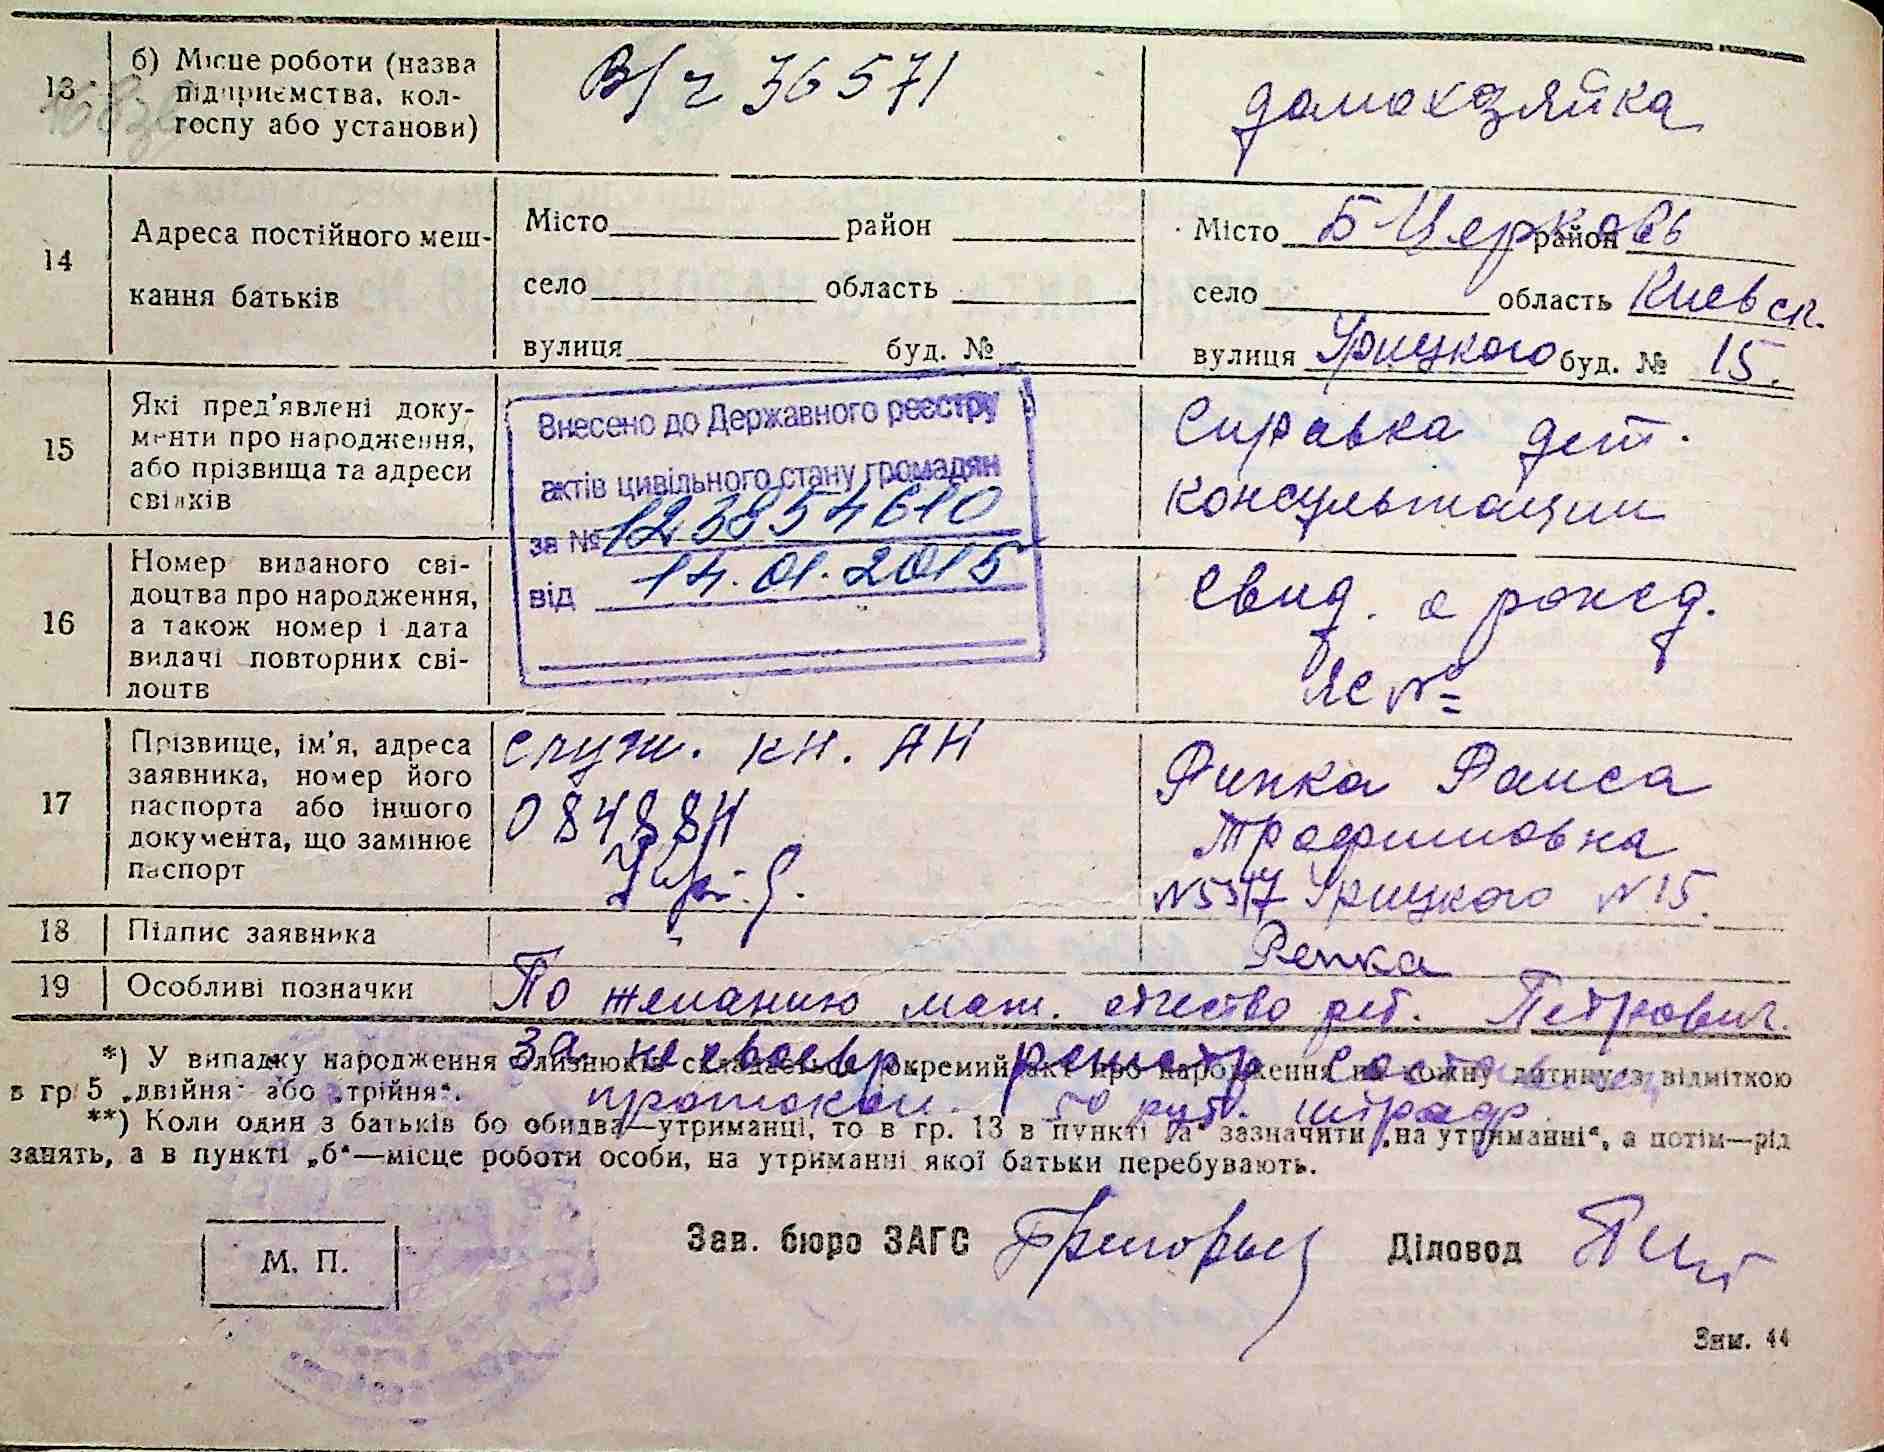 13
б) Місце роботи (назва
підприємства, кол-
госпу або установи)
В/ч 36571
домохозяйка
14
Адреса постійного меш-
кання батьків
Місто район
село область
вулиця буд. №
Місто Б-Церковь район
село область Киевск.
вулиця Урицкого буд. № 15.
15
Які пред’явлені доку-
менти про народження,
або прізвища та адреси
свідків
Внесено до Державного реєстру
актів цивільного стану громадян
за № 123854610
від 14.01.2015
Справка дет.
консультации
16
Номер виданого сві-
доцтва про народження,
а також номер і дата
видачі повторних сві-
доцтв
Свид. о рожд.
ЯС №
17
Прізвище, ім’я, адреса
заявника, номер його
паспорта або іншого
документа, що замінює
паспорт
служ. кн. АН
Раиса
Трофимовна
Урицкого №15.
18
Підпис заявника
Репка
19
Особливі позначки
По желанию мат. отчество реб. Петрович.
За несвоевр. регистр составлен
протокол. 50 руб. штраф.
*) У випадку народження близнюків складається окремий акт про народження на кожну дитину з відміткою
в гр 5 „двійня“ або „трійня“.
**) Коли один з батьків бо обидва—утриманці, то в гр. 13 в пункті „а“ зазначити „на утриманні“, а потім—рід
занять, а в пункті „б“—місце роботи особи, на утриманні якої батьки перебувають.
М. П.
Зав. бюро ЗАГС
Діловод
Зам. 44